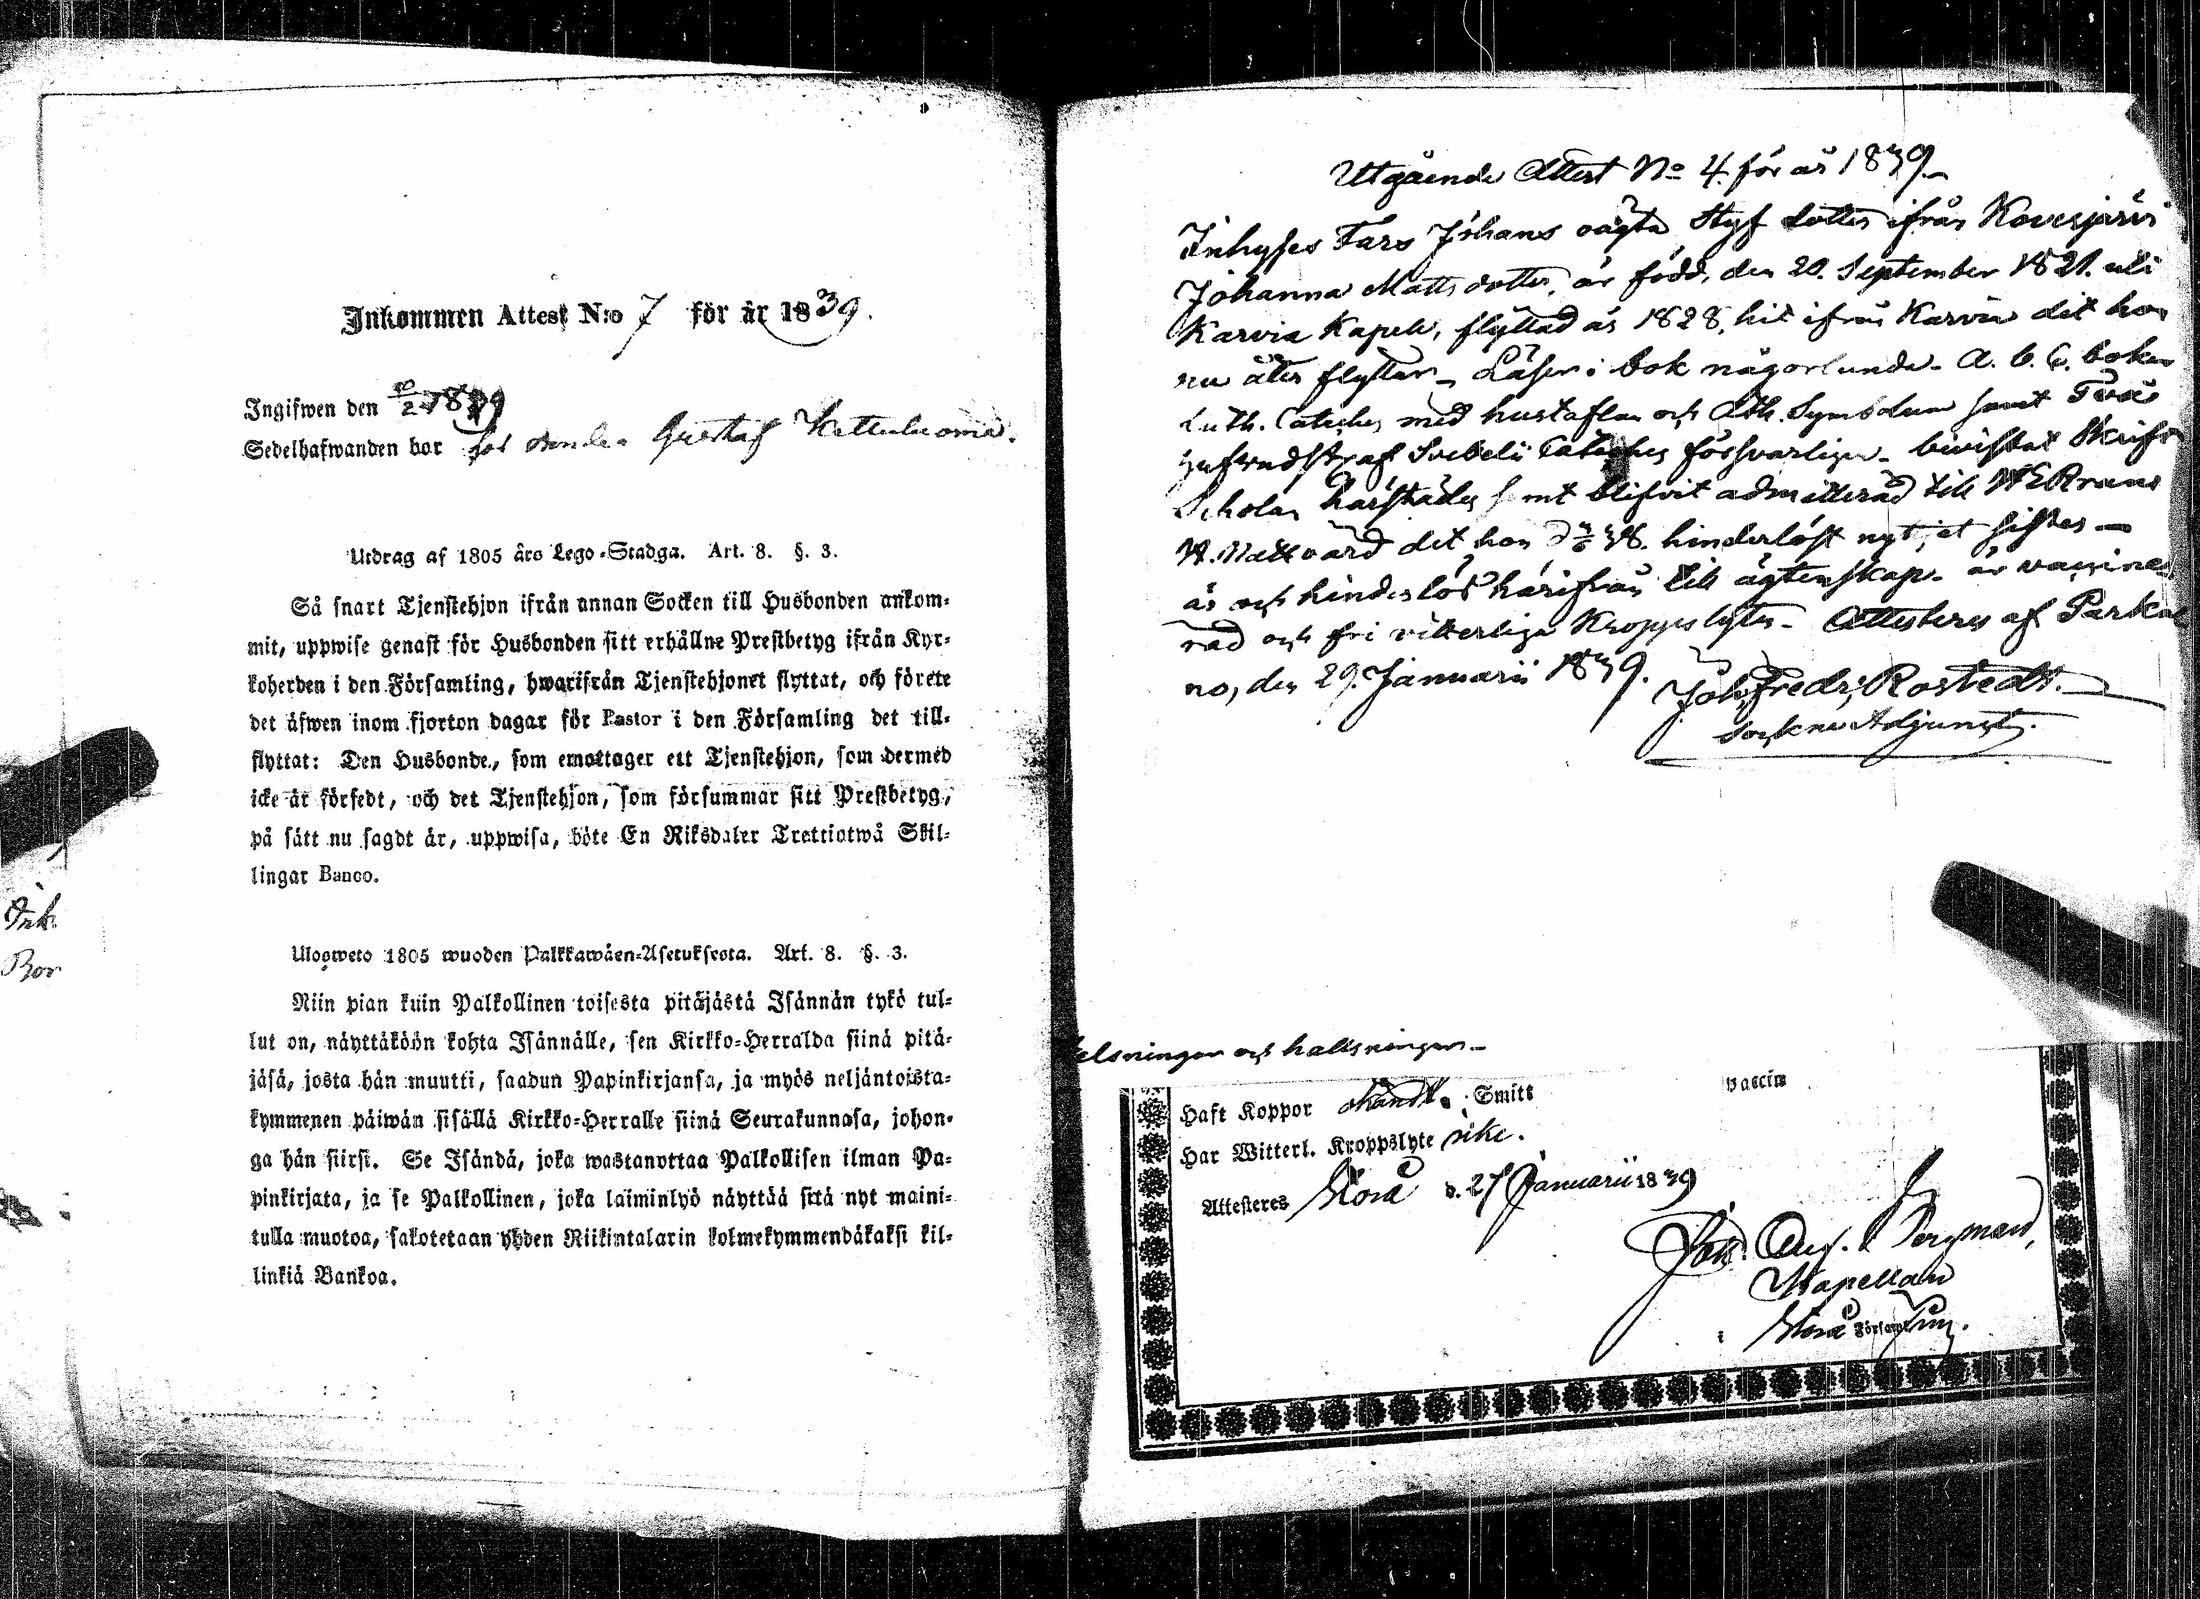 Inkommen Attest N:o 7 för år 1839.
Ingifwen den 1839
Sedelhafwanden bor hos Gustaf
Utdrag af 1805 års Lego-Stadga. Art. 8. §. 3.
Så snart Tjenstehjon ifrån annan Socken till Husbonden ankom-
mit, uppwise genast för Husbonden sitt erhållne Prestbetyg ifrån Kyr-
koherden i den Församling, hwarifrån Tjenstehjonet flyttat, och förete
det äfwen inom fjorton dagar för Pastor i den Församling det till-
flyttat: Den Husbonde, som emottager ett Tjenstehjon, som dermed
icke är försedt, och det Tjenstehjon, som försummar sitt Prestbetyg,
på sätt nu sagdt är, uppwisa, böte En Riksdaler Trettiotwå Skil-
lingar Banco.
Ulosweto 1805 wuoden Palkkawäen-Asetuksesta. Art. 8. §. 3.
Niin pian kuin Palkollinen toisesta pitäjästä Isännän tykö tul-
lut on, näyttäköön kohta Isännälle, sen Kirkko-Herralda siinä pitä-
jäsä, josta hän muutti, saadun Papinkirjansa, ja myös neljäntoista-
kymmenen päiwän sisällä Kirkko-Herralle siinä Seurakunnasa, johon-
ga hän siirsi. Se Isändä, joka wastanottaa Palkollisen ilman Pa-
pinkirjata, ja se Palkollinen, joka laiminlyö näyttää sitä nyt maini-
tulla muotoa, sakotetaan yhden Riikintalarin kolmekymmendäkaksi kil-
linkiä Bankoa.
Ink.
Bor
Utgående Attest No 4. för år 1839.
Inhyses Lars Johans oägta Styf dotter ifrån Kovesjärvi
Johanna Mattsdotter, är född, den 20. September 1821. uti
Karvia Kapell, flyttad år 1828, hit ifrån Karvia dit hon
nu åter flyttar. Läser i bok någorlunda. A. b. c. boken
Luth. Cateches med hustaflan och Ath. Symbolum samt Två
af Svebelii Cateches försvarligen. bivistat Skrift
Scholan härstädes samt blifvit admitterad till
H. Nattvard det hon 38. hinderlöst nyttjat sistes
är och hinderlös härifrån till ägtenskap. är vaccine-
rad och fri vitterliga Kroppslyten. Attesteras af Parka
no, den 29. Januarii 1839. Joh. Fredr. Rostedt.
Sockne Adjunct.
elsningen och
Haft Koppor Smitt vaccin
Har Witterl. Kroppslyte icke.
Attesteres Storå d. 27 Januarii 1839
Joh. Aug. Bergman,
Kapellan
i Storå Församling.